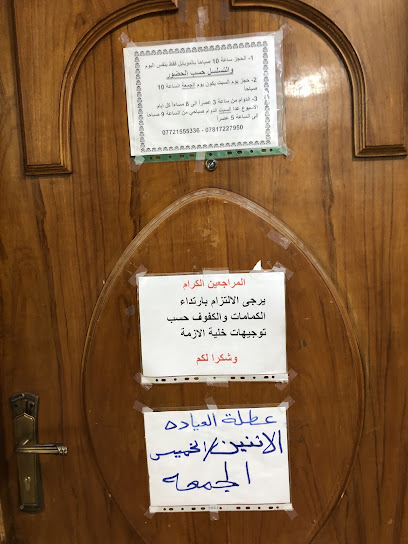 1- الحجز ساعة 10 صباحا بالموبايل فقط بنفس اليوم
والتسلسل حسب الحضور
2- حجز يوم السبت يكون يوم الجمعة الساعة 10
صباحا
3- الدوام من ساعة 3 عصرا الى 8 مساءا كل ايام
الاسبوع عدا السبت الدوام صباحي من الساعة 9 صباحا
الى الساعة 5 عصرا
07721555336 - 07817227950
المراجعين الكرام
يرجى الالتزام بارتداء
الكمامات والكفوف حسب
توجيهات خلية الازمة
وشكرا لكم
عطلة العياده
الاثنين/الخميس
الجمعه